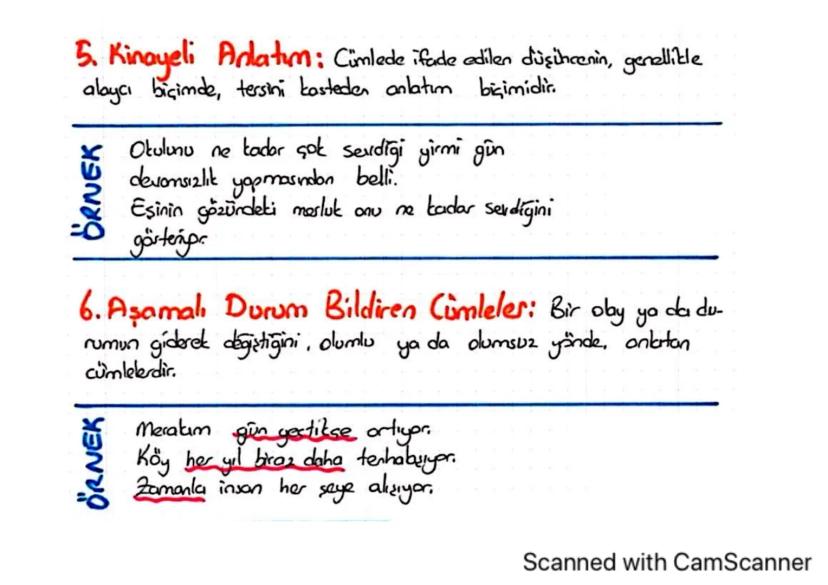 5. Kinayeli Anlatım: Cümlede ifade edilen düşüncenin, genellikle
alaycı biçimde, tersini kasteden anlatım biçimidir.
ÖRNEK
Okulunu ne kadar çok sevdiği yirmi gün
devamsızlık yapmasından belli.
Eşinin gözündeki morluk onu ne kadar sevdiğini
gösteriyor.
6. Aşamalı Durum Bildiren Cümleler: Bir olay ya da du-
rumun giderek değiştiğini, olumlu ya da olumsuz yönde, anlatan
cümlelerdir.
ÖRNEK
Merakım gün geçtikçe artıyor.
Köy her yıl biraz daha tenhalaşıyor.
Zamanla insan her şeye alışıyor.
Scanned with CamScanner